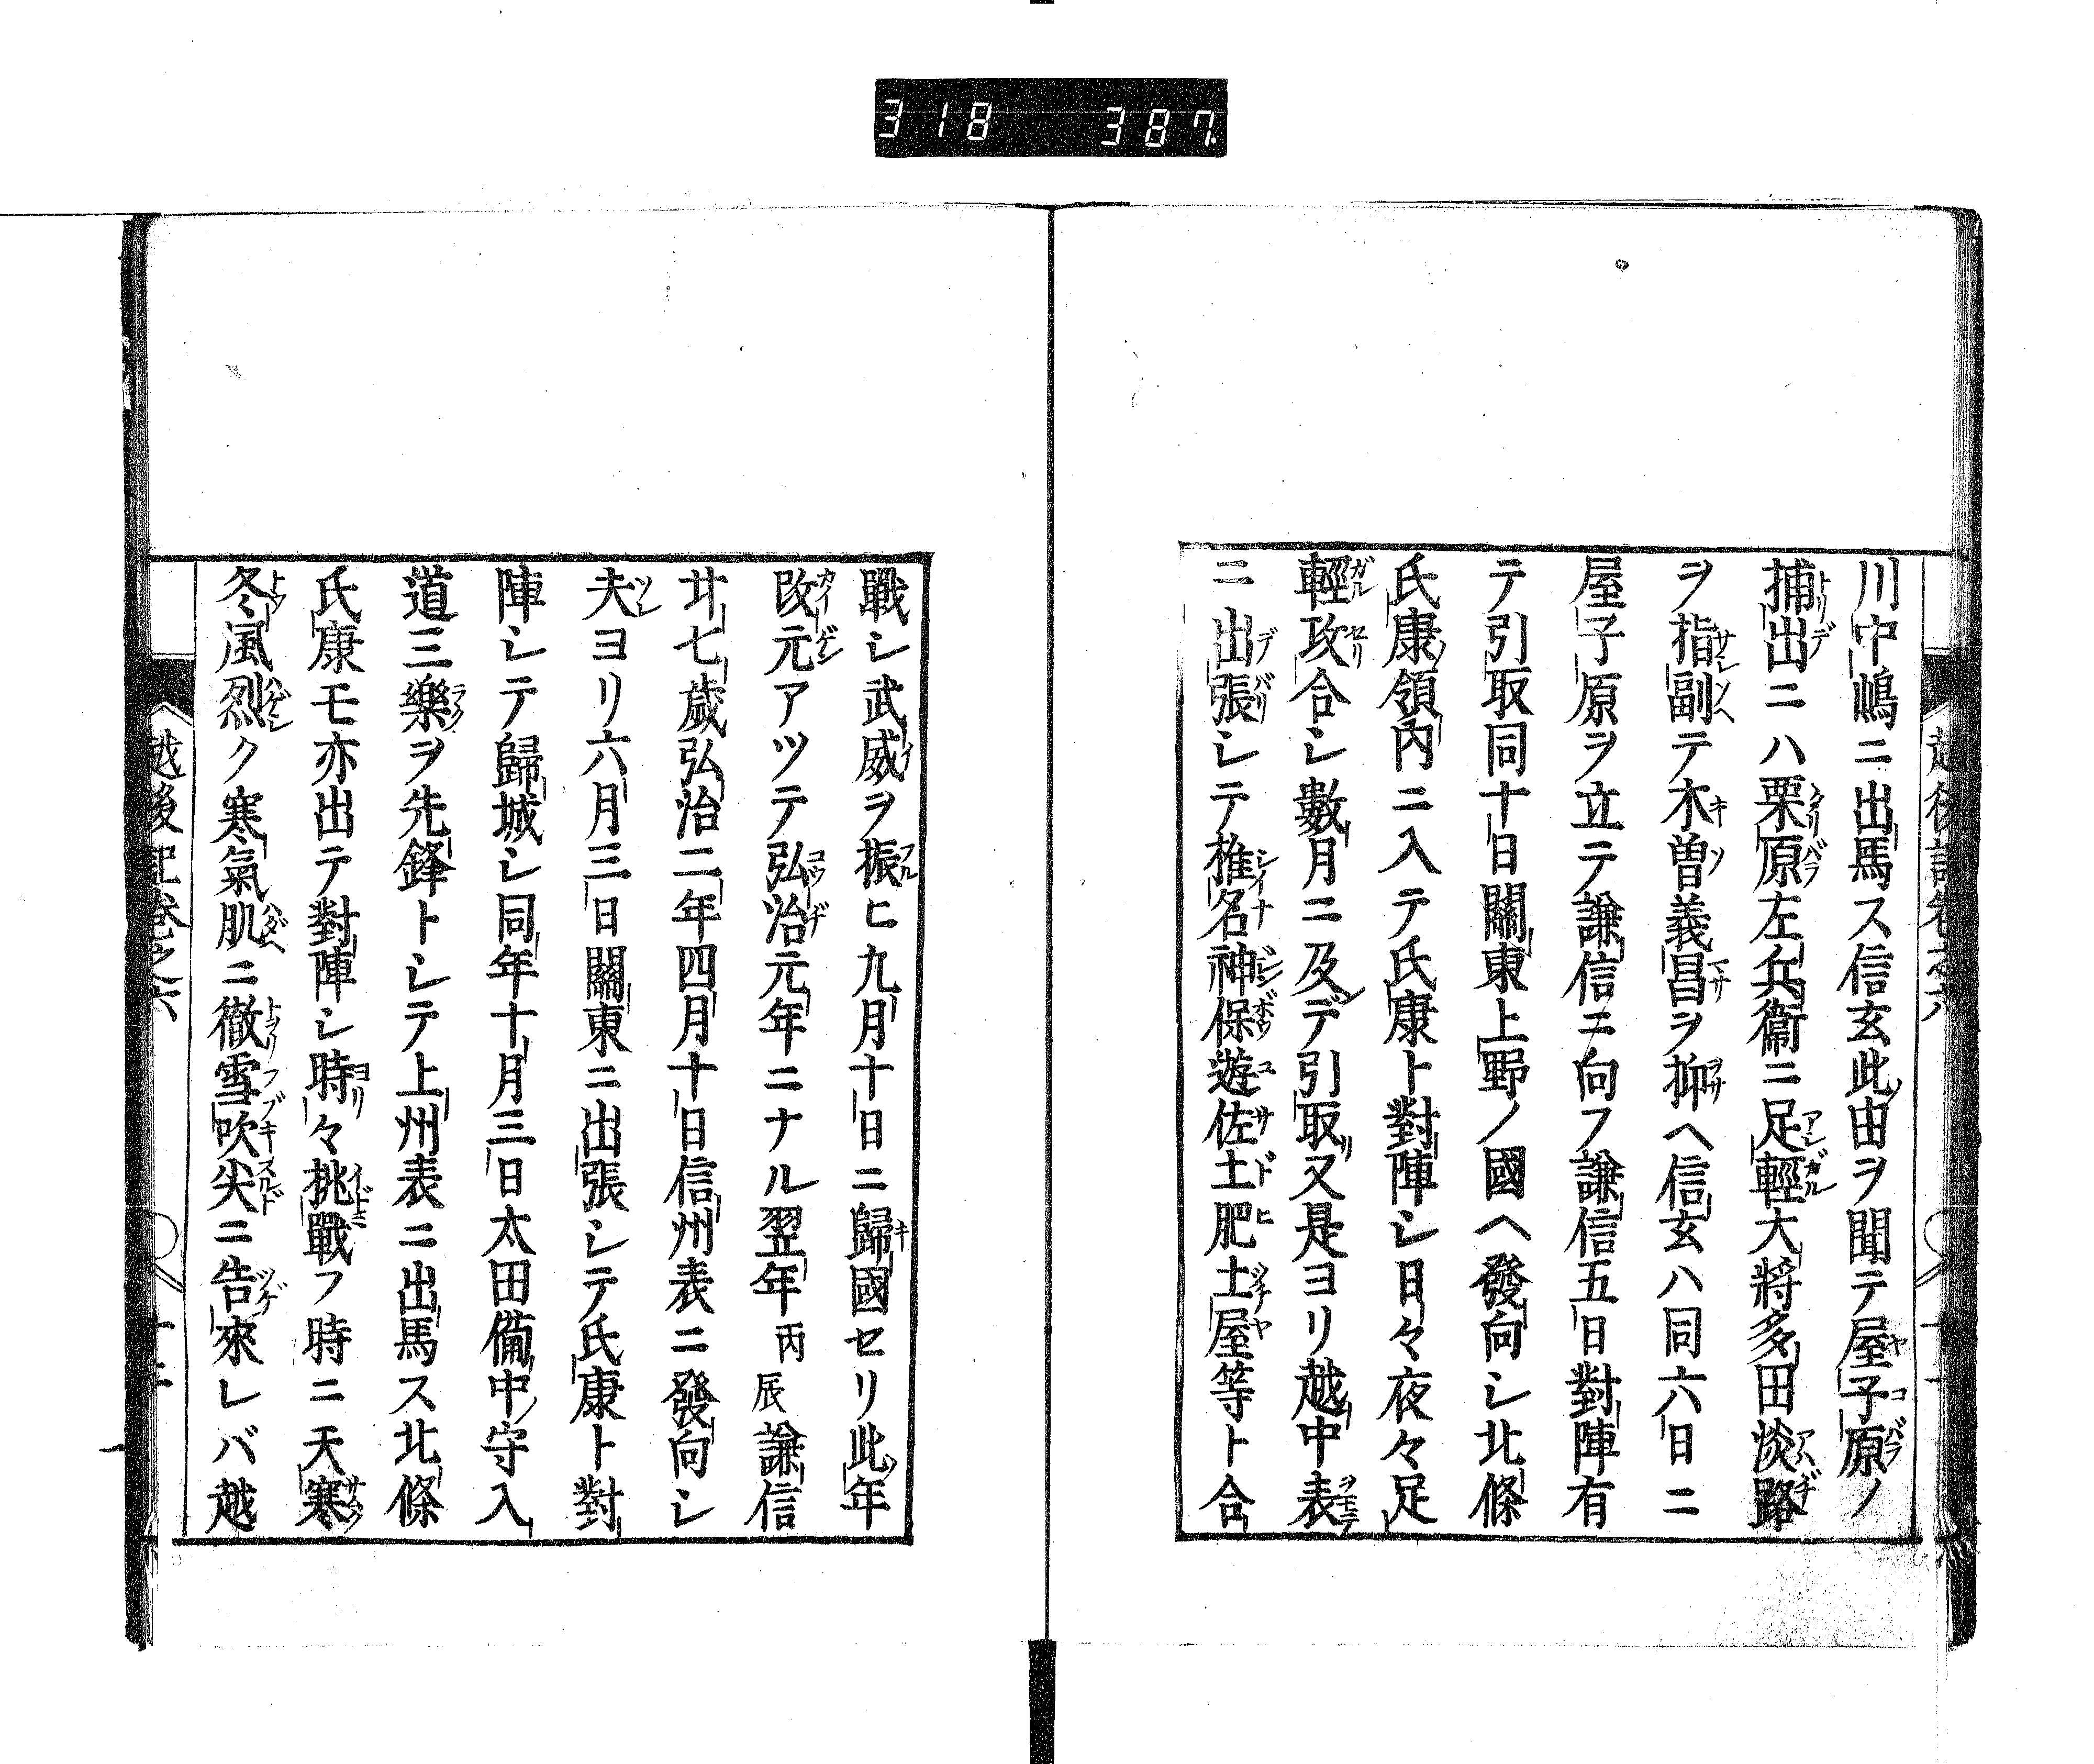 318 387
川中嶋ニ出馬ス信玄此由ヲ聞テ屋子原ノ
捕出ニハ栗原左兵衞ニ足輕大將多田淡路
ヲ指副テ木曽義昌ヲ抑ヘ信玄ハ同六日ニ
屋子原ヲ立テ謙信ニ向フ謙信五日對陣有
テ引取同十日關東上野ノ國ヘ發向シ北條
氏康領内ニ入テ氏康ト對陣シ日々夜々足
輕攻合シ數月ニ及デ引取又是ヨリ越中表
ニ出張シテ椎名神保遊佐土肥土屋等ト合
戰シ武威ヲ振ヒ九月十日ニ歸國セリ此年
改元アツテ弘治元年ニナル翌年丙辰謙信
廿七歳弘治二年四月十日信州表ニ發向シ
夫ヨリ六月三日關東ニ出張シテ氏康ト對
陣シテ歸城シ同年十月三日太田備中守入
道三樂ヲ先鋒トシテ上州表ニ出馬ス北條
氏康モ亦出テ對陣シ時々挑戰フ時ニ天寒
冬風烈ク寒氣肌ニ徹雪吹尖ニ告來レバ越
越後記巻之六